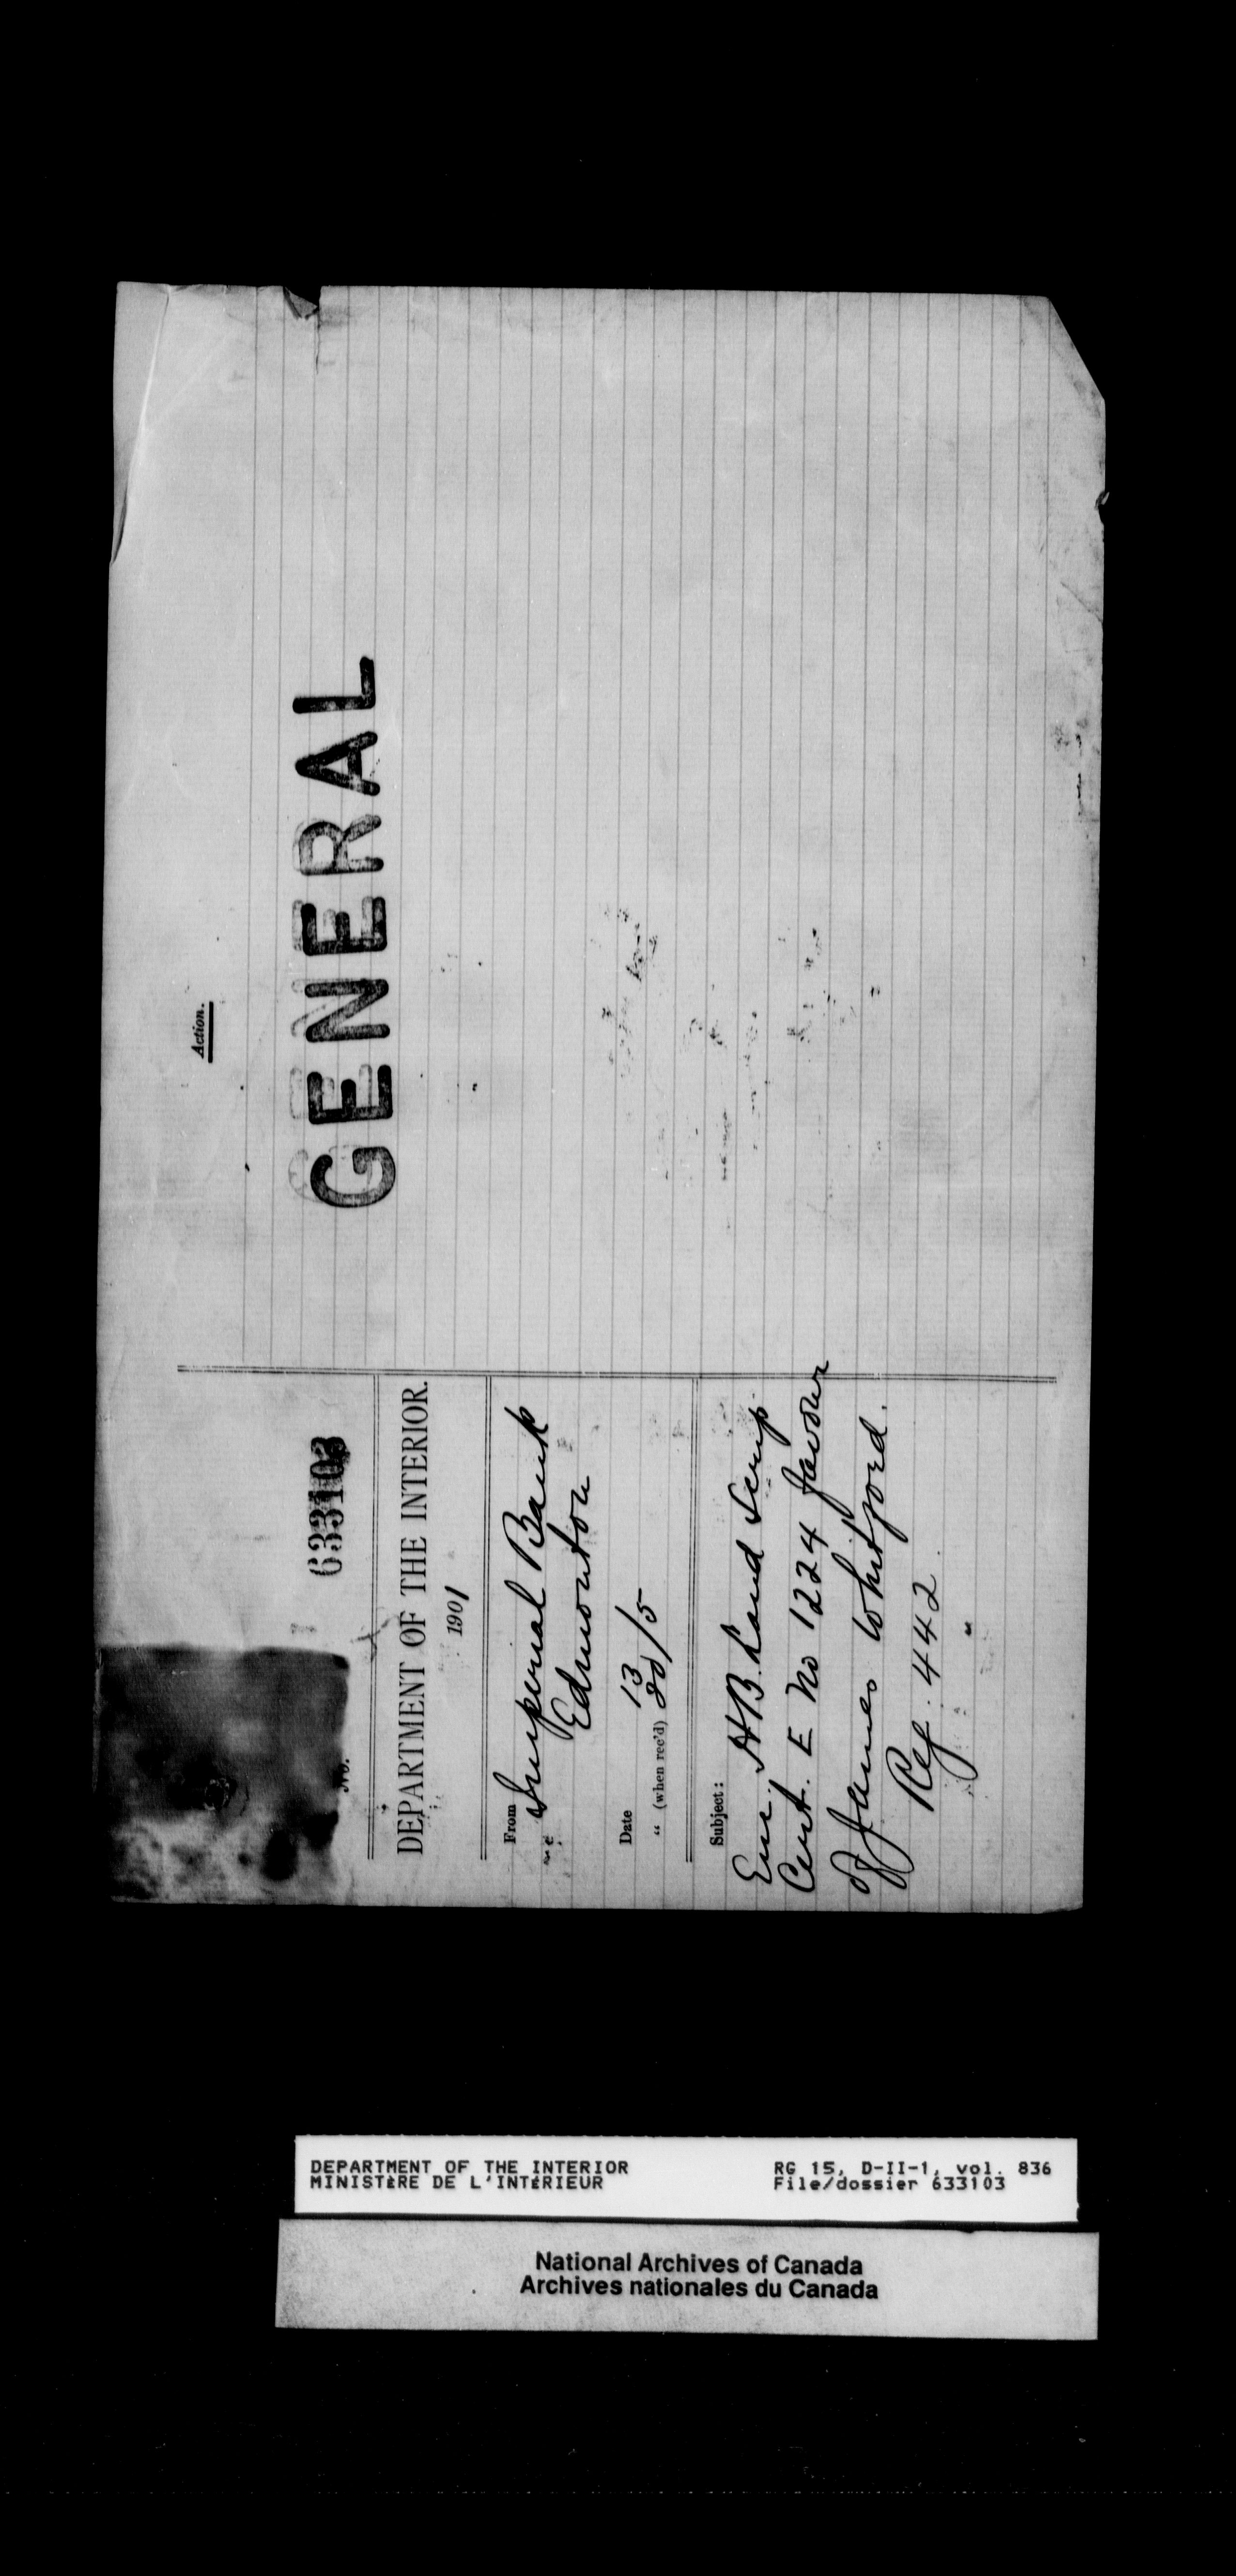 No. 633103
DEPARTMENT OF THE INTERIOR.
1901
From Imperial Bank
Edmonton
Date 13
" (when rec'd) 20/5
Subject:
Enc. HB. Land Scrip
Cert. E No 1224 favour
of James Whitford.
Ref. 442
Action.
GENERAL
DEPARTMENT OF THE INTERIOR
MINISTÈRE DE L'INTÉRIEUR
RG 15, D-II-1, vol. 836
File/dossier 633103
National Archives of Canada
Archives nationales du Canada